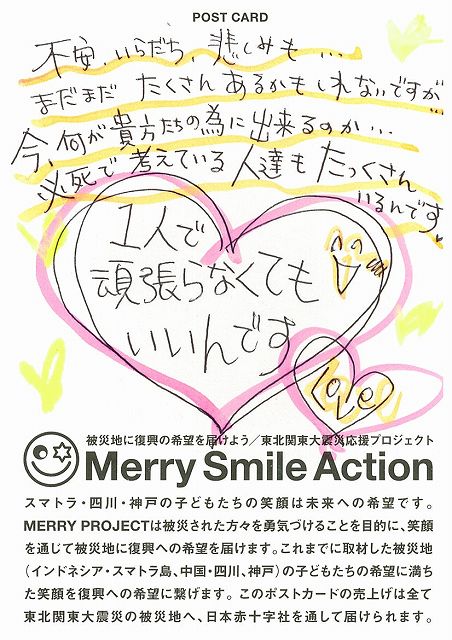 POST CARD
不安、いらだち、悲しみも・・・
まだまだ たくさん あるかもしれないですが・・
今、何が貴方たちの為に出来るのか・・・
必死で 考えている 人達も たっくさん
いるんです
1人で
頑張らなくても
いいんです
Love
被災地に復興の希望を届けよう／東北関東大震災応援プロジェクト
Merry Smile Action
スマトラ・四川・神戸の子どもたちの笑顔は未来への希望です。
MERRY PROJECTは被災された方々を勇気づけることを目的に、笑顔
を通じて被災地に復興への希望を届けます。これまでに取材した被災地
（インドネシア・スマトラ島、中国・四川、神戸）の子どもたちの希望に満ち
た笑顔を復興への希望に繋げます。このポストカードの売上げは全て
東北関東大震災の被災地へ、日本赤十字社を通して届けられます。